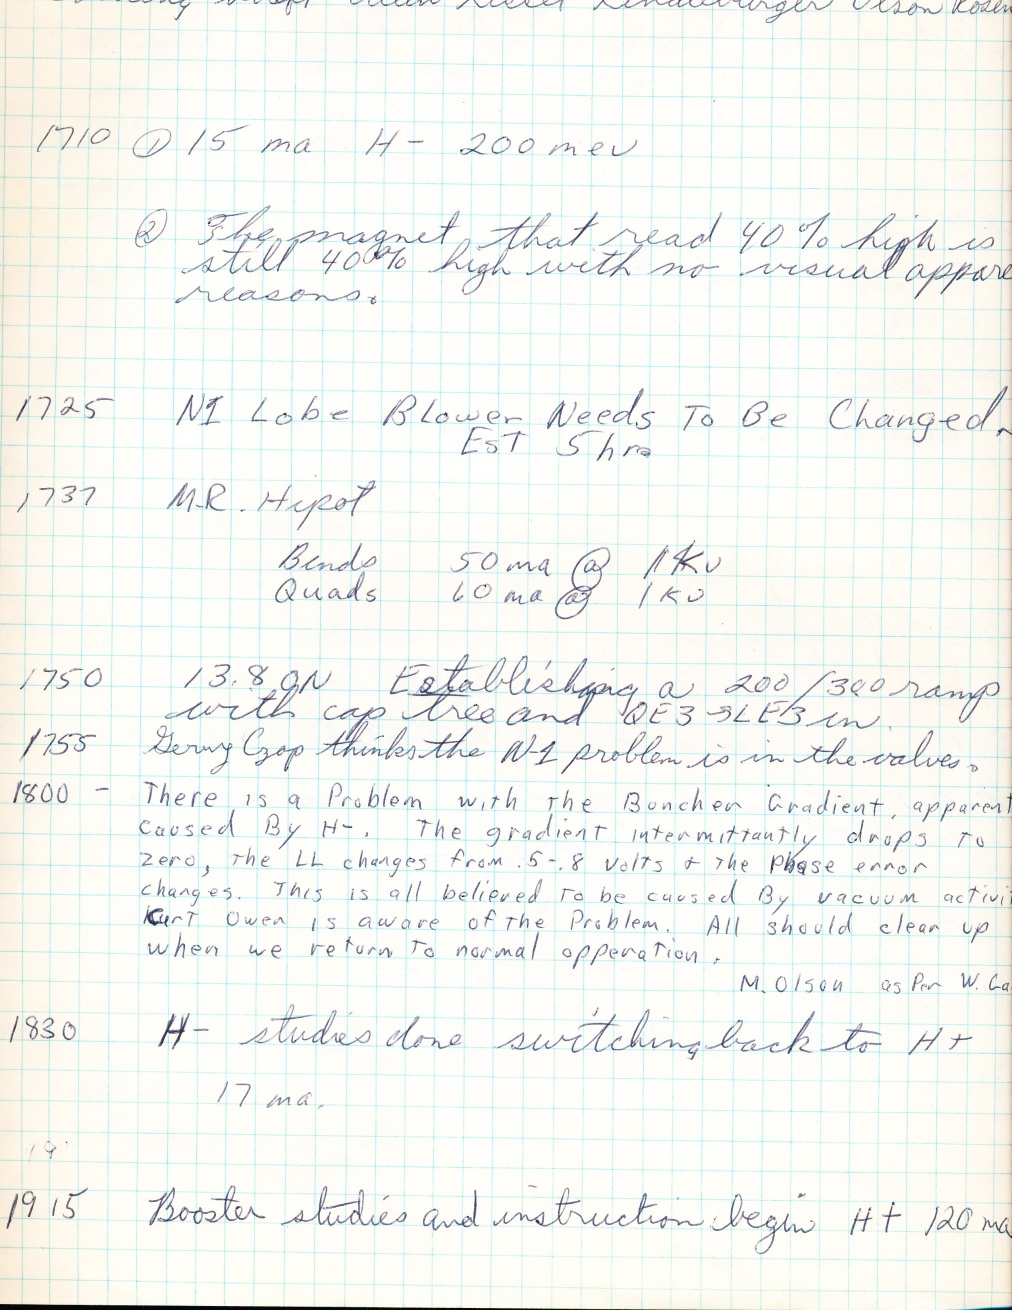 Olson Rosen
1710 ① 15 ma H- 200 mev
② The magnet that read 40% high is
still 40% high with no visual appare
reasons.
1725 N1 Lobe Blower Needs To Be Changed.
Est 5 hrs
1737 M.R. Hipot
Bends 50 ma @ 1 KV
Quads 60 ma @ 1 KV
1750 13.8 ON Establishing a 200/300 ramp
with cap tree and QE3 SLE3 in.
1755 Gerry Czop thinks the N-1 problem is in the valves.
1800 - There is a Problem with the Buncher Gradient, apparent
caused By H-. The gradient intermittantly drops to
zero, the LL changes from .5-.8 volts + the Phase error
changes. This is all believed to be caused By vacuum activi
Kurt Owen is aware of the Problem. All should clear up
when we return to normal opperation.
M. Olson as Per W. Ga
1830 H- studies done switching back to H+
17 ma.
19
1915 Booster studies and instruction begin H+ 120 ma